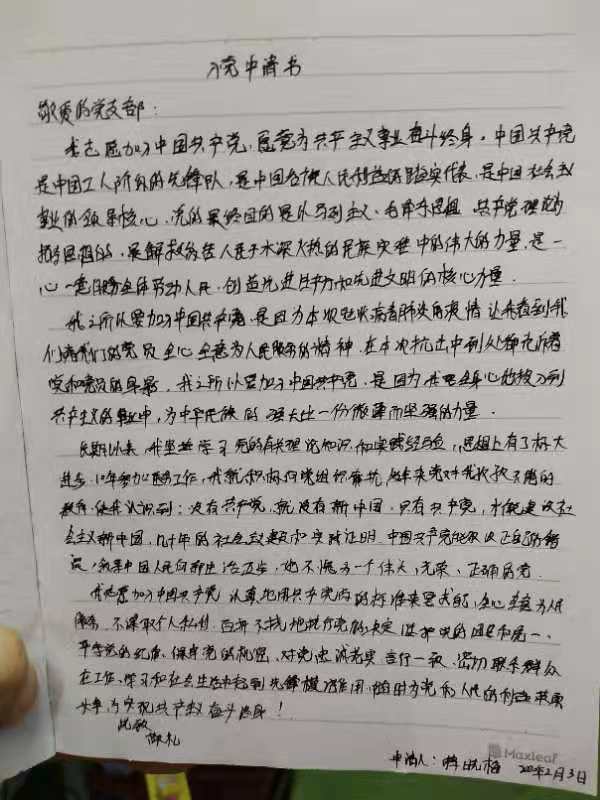 入党申请书
敬爱的党支部：
我志愿加入中国共产党，愿意为共产主义事业奋斗终身。中国共产党
是中国工人阶级的先锋队，是中国各族人民利益的忠实代表，是中国社会主
事业的领导核心。党的最终目的是 马列主义、毛泽东思想 共产党理论为
指导思想的，是解救劳苦人民于水深火热的民族灾难中的伟大的力量，是一
心一意服务全体劳动人民，创造先进生产力和先进文明的核心力量。
我之所以要加入中国共产党，是因为本次冠状病毒肺炎疫情 让我看到我
们 我们的党员 全心全意为人民服务的精神，在本次抗击中到处都充斥着
党和党员的身影，我之所以要加入中国共产党，是因为我要全身心地投入到
共产主义的事业中，为中华民族的 强大出一份微薄而坚强的力量。
长期以来，我坚持学习 党的有关理论知识 和实践经验，思想上有了极大
进步，10年参加 工作，我就积极向党组织靠拢，
教育，使我认识到：没有共产党，就没有新中国，只有共产党，才能建设社
会主义新中国，几十年的社会主义建设和实践证明，中国共产党
是中国人民 她不愧为一个伟大、光荣、正确的党
我志愿加入中国共产党 认真地用共产党员的标准来要求自己，全心全意为人民
服务，不谋取个人私利，百折不挠地执行党的决定 维护党的团结和统一、
党的纪律、保守党的机密、对党忠诚老实 言行一致、密切联系群众
在工作、学习和社会生活中起到先锋模范作用，随时为党和人民的利益
为实现共产主义奋斗终身！
此致
敬礼
申请人：
月3日
Maxleaf